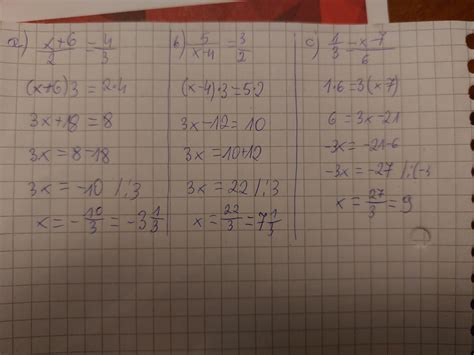 a) x+6/2 = 4/3
(x+6)3 = 2·4
3x+18 = 8
3x = 8-18
3x = -10 /:3
x = -10/3 = -3 1/3
b) 5/x-4 = 3/2
(x-4)·3 = 5·2
3x-12 = 10
3x = 10+12
3x = 22 /:3
x = 22/3 = 7 1/3
c) 1/3 = x-7/6
1·6 = 3(x-7)
6 = 3x-21
-3x = -21-6
-3x = -27 /:(-3
x = 27/3 = 9